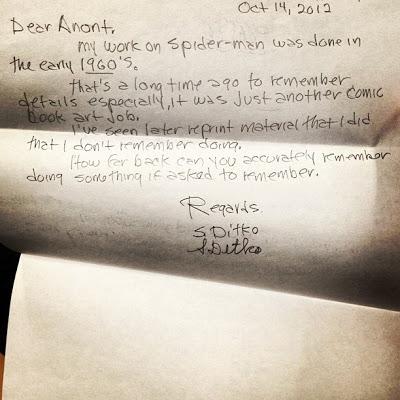 Oct 14, 2012
Dear Anont,
my work on Spider-man was done in
the early 1960's.
that's a long time ago to remember
details especially, it was just another comic
book art job.
I've seen later reprint material that I did
that I don't remember doing.
How far back can you accurately remember
doing something if asked to remember.
Regards
S. Ditko
S. Ditko